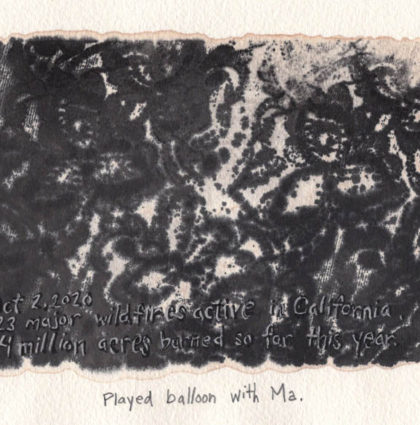 Oct 2.2020
23 major wildfires active in California.
4 million acres burned so far this year.
Played balloon with Ma.